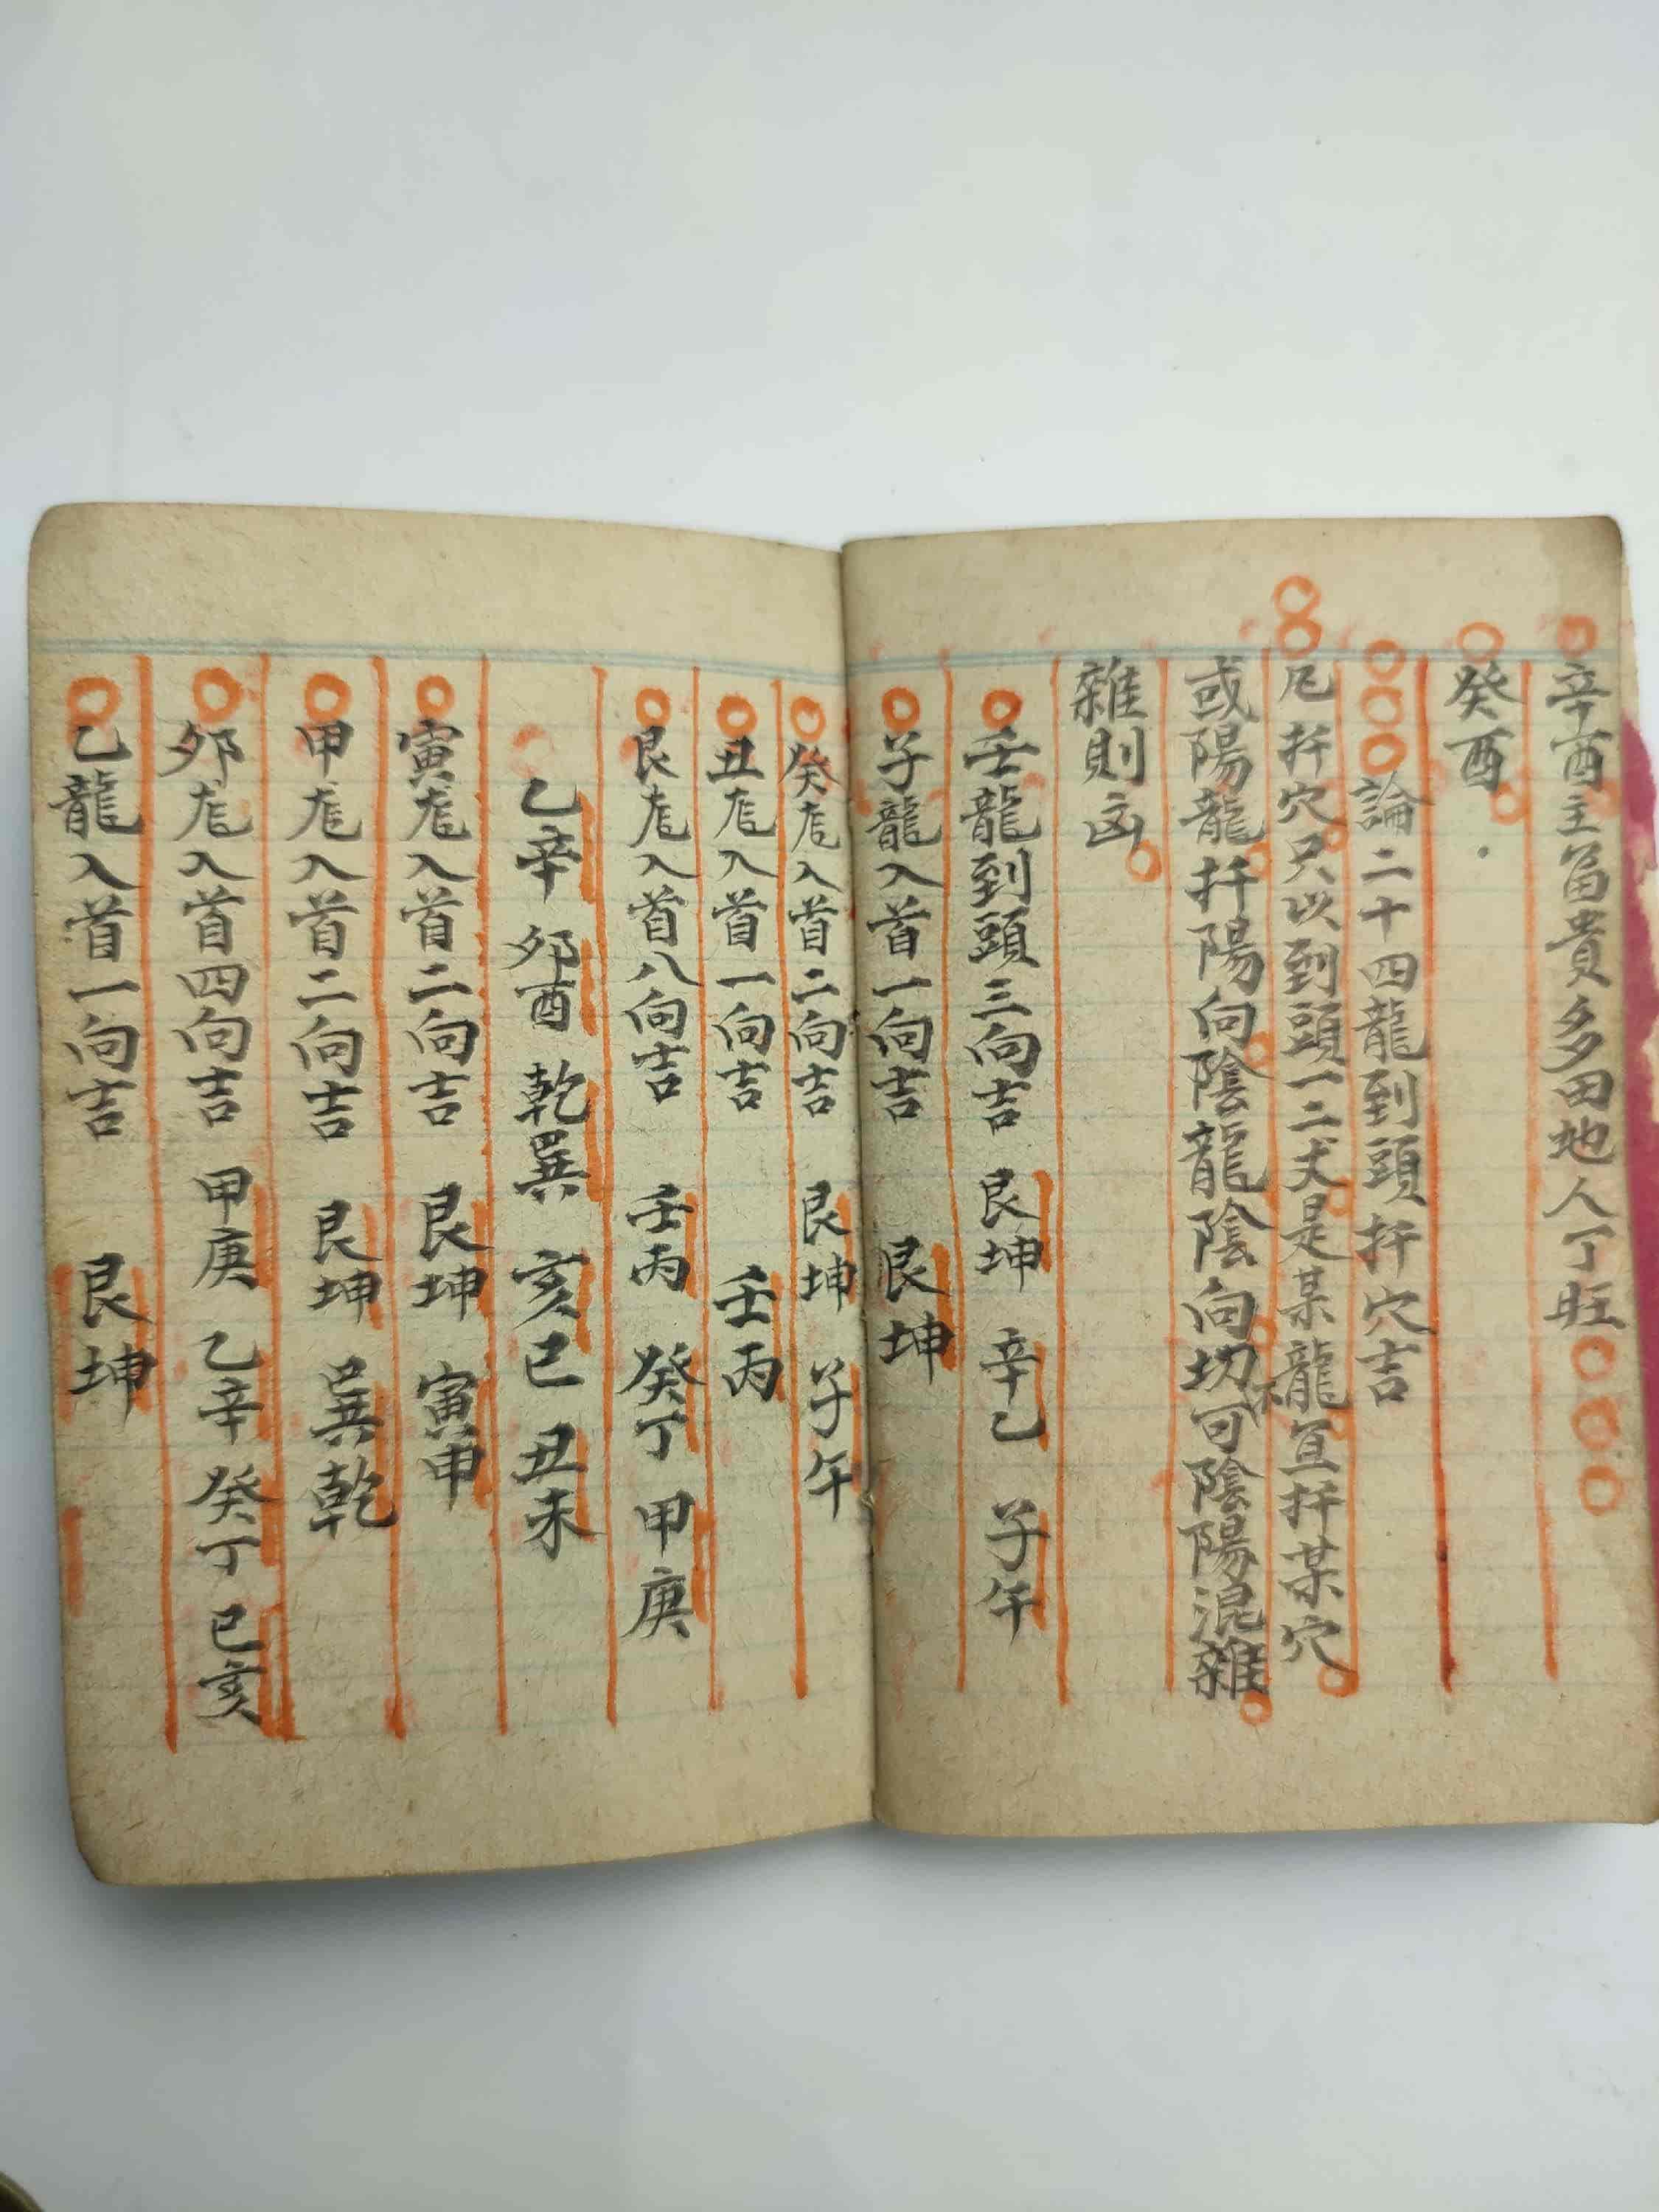 辛酉主富貴多田地人丁旺
癸酉
論二十四龍到頭扦穴吉
凡扦穴只以到頭一二丈是某龍宜扦某穴
或陽龍扦陽向陰龍陰向切不可陰陽混雜
雜則凶
壬龍到頭三向吉 艮坤 辛乙 子午
子龍入首一向吉 艮坤
癸龙入首二向吉 艮坤 子午
丑龙入首一向吉 壬丙
艮龙入首八向吉 壬丙 癸丁 甲庚
乙辛 夘酉 乾巽 亥巳 丑未
寅龙入首二向吉 艮坤 寅申
甲龙入首二向吉 艮坤 巽乾
夘龙入首四向吉 甲庚 乙辛 癸丁 巳亥
乙龍入首一向吉 艮坤